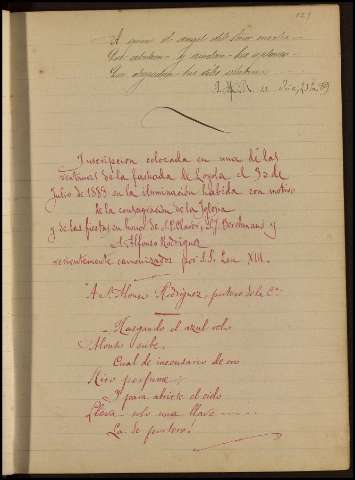 129
A quien el angel del Señor
Inscripcion colocada en una de las
ventanas de la fachada de Loyola el 30 de
Julio de 1889 en la iluminación habida con motivo
de la consagración de la Iglesia
y de las fiestas en honor de S. P. Claver, S. J. Berchmans y
S. Alfonso Rodriguez
recientemente canonizados por S. S. Leon XIII.
A S. Alonso Rodriguez, portero de la Cª
Rasgando el azul velo
Alonso sube.
Cual de incensario de oro
Rico perfume:
Y para abrirse el cielo
Lleva solo una llave
La de portero!